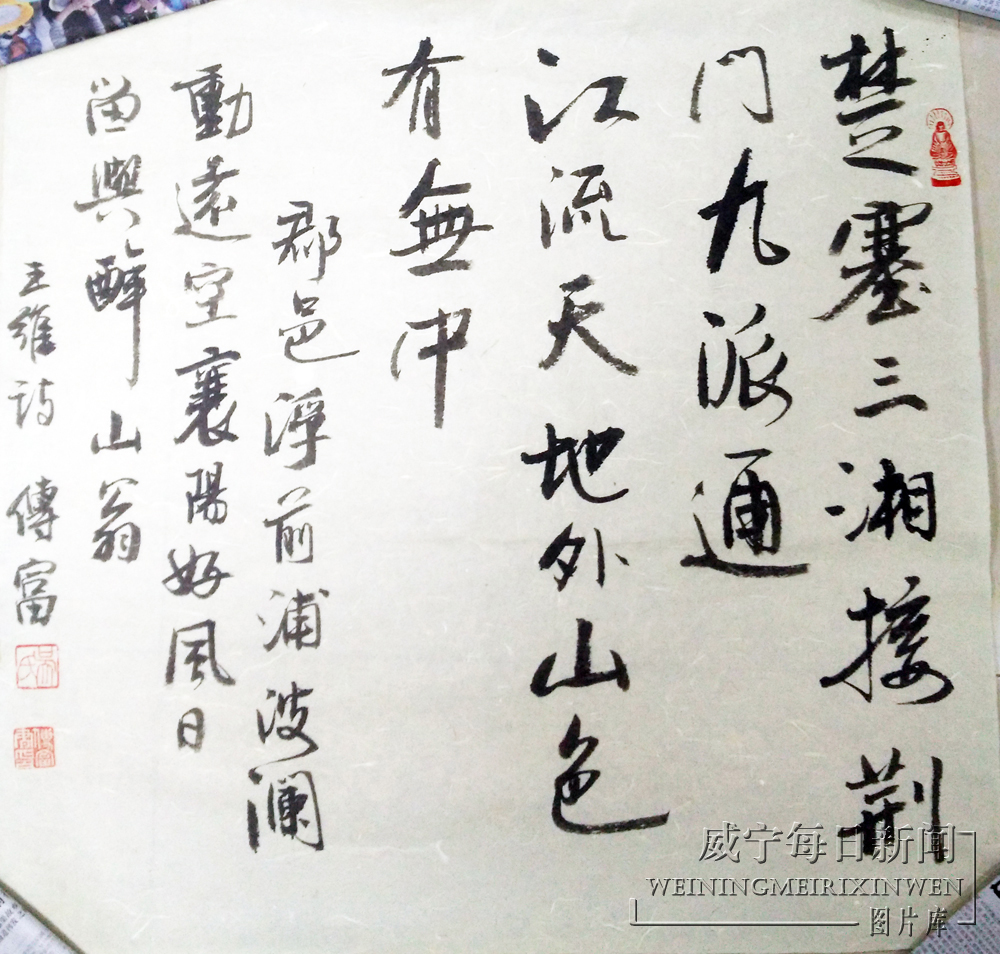 楚塞三湘接荆
门九派通
江流天地外山色
有無中
郡邑浮前浦波瀾
動遠空襄陽好風日
留與醉山翁
王維詩 傅富
威宁每日新闻
WEININGMEIRIXINWEN
图片库